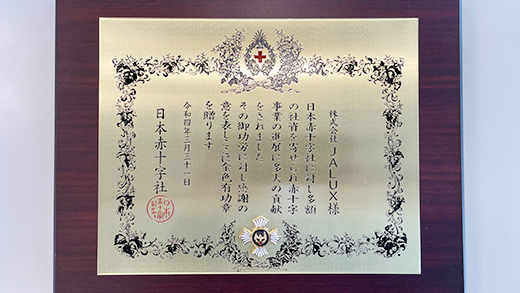 株式会社JALUX様
日本赤十字社に対し多額
の社資を寄せられ赤十字
事業の進展に多大の貢献
をされました
その御功労に対し感謝の
意を表しここに金色有功章
を贈ります
令和四年三月三十一日
日本赤十字社